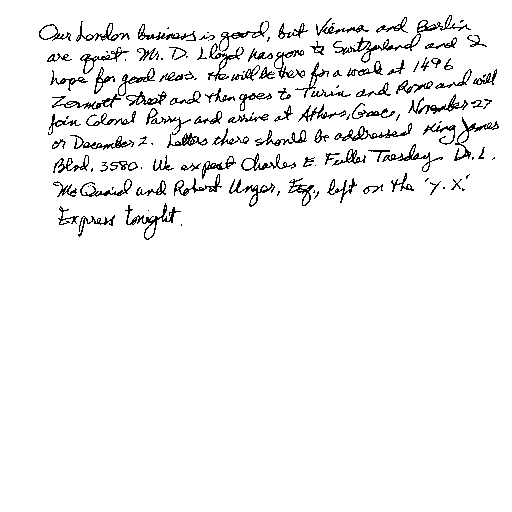 Our London business is good, but Vienna and Berlin
are quiet. Mr. D. Lloyd has gone to Switzerland and I
hope for good news. He will be there for a week at 1496
Zermott Street and then goes to Turin and Rome and will
join Colonel Parry and arrive at Athens, Greece, November 27
or December 2. Letters there should be addressed King James
Blvd, 3580. We expect Charles E. Fuller Tuesday. Dr. L.
McQuaid and Robert Unger, Esq., left on the 'Y.X.'
Express tonight.